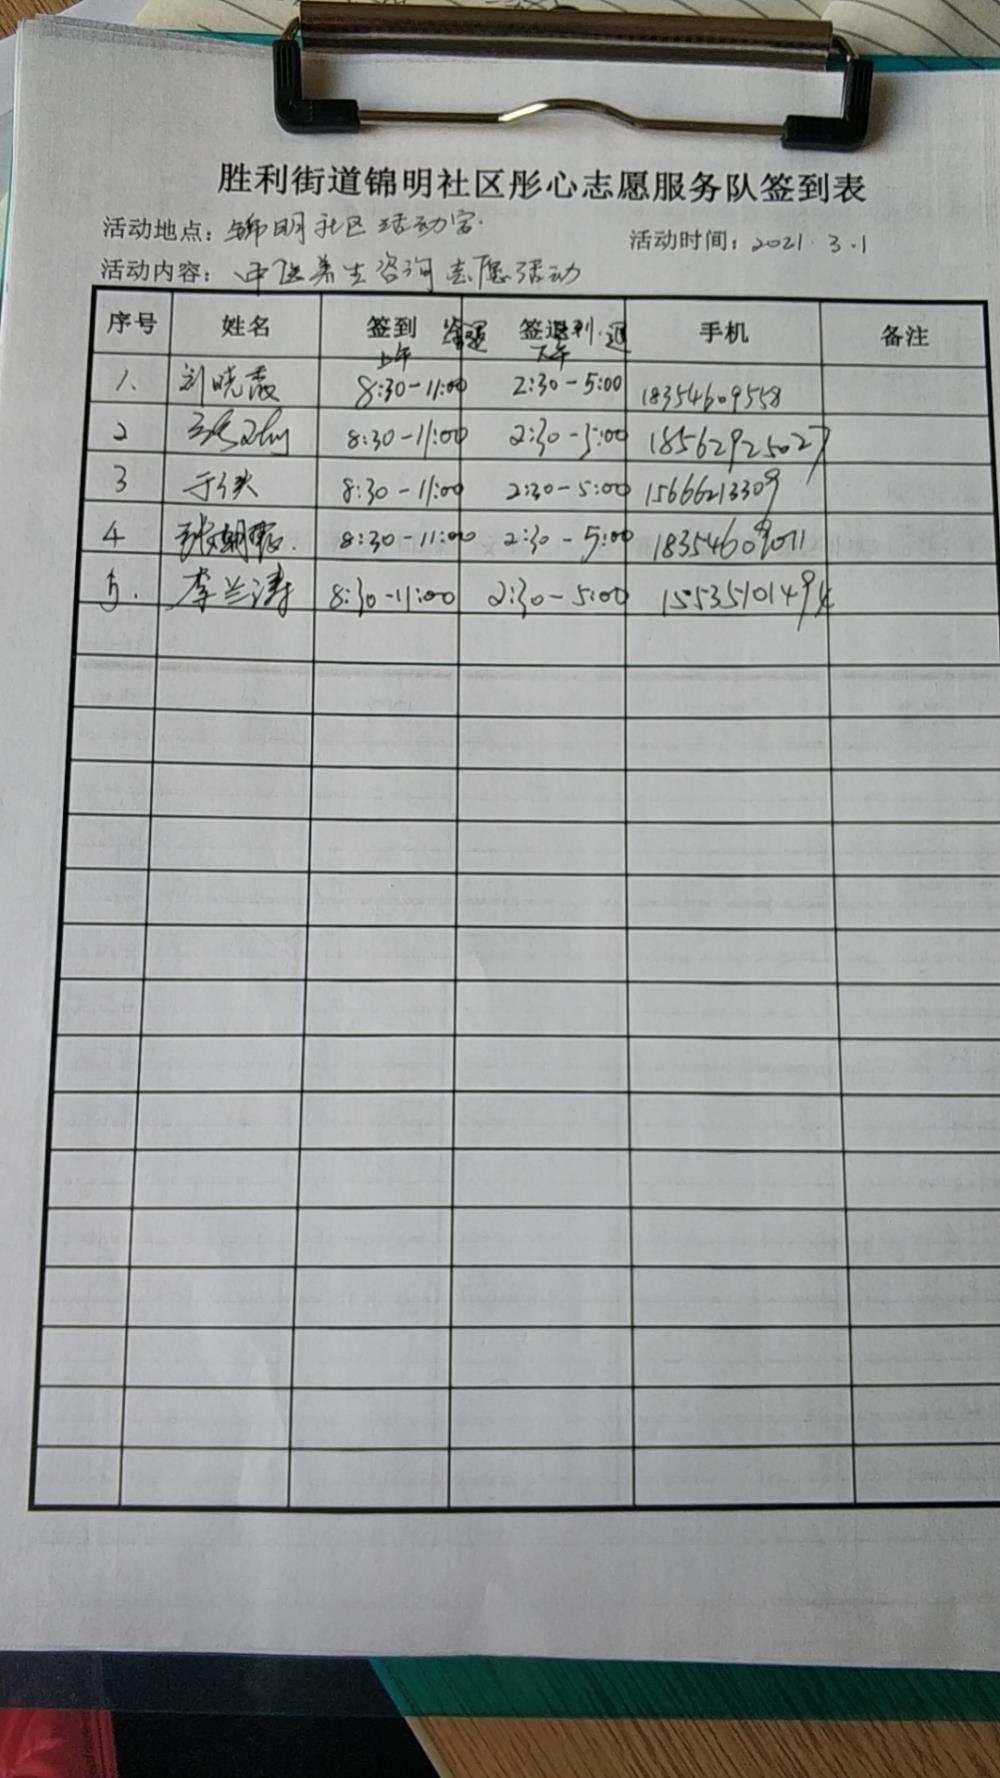 胜利街道锦明社区彤心志愿服务队签到表
活动地点：锦明社区活动室.
活动时间：2021.3.1
活动内容：中医养生咨询志愿活动
序号 姓名 签到 签退 签退到.退 手机 备注
上午 下午
1. 刘晓霞 8:30-11:00 2:30-5:00 18354609558
2 8:30-11:00 2:30-5:00 18562925027
3 于侠 8:30-11:00 2:30-5:00 15666213309
4 张朝霞. 8:30-11:00 2:30-5:00 18354609011
5. 李兰涛 8:30-11:00 2:30-5:00 15535101494